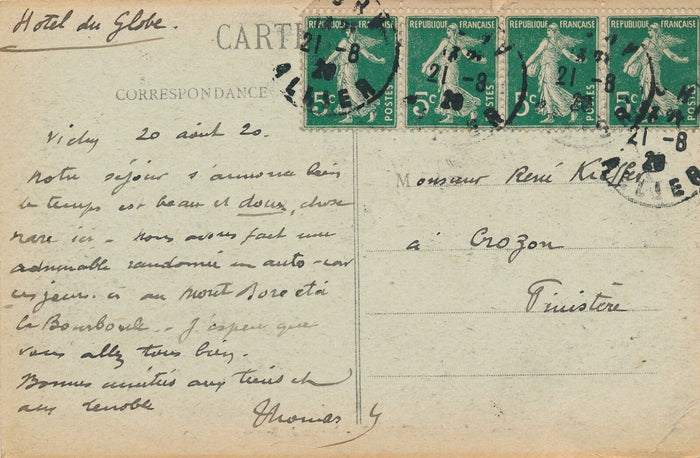 Hotel du Globe.
CARTE
CORRESPONDANCE
RÉPUBLIQUE FRANÇAISE RÉPUBLIQUE FRANÇAISE RÉPUBLIQUE FRANÇAISE RÉPUBLIQUE FRANÇAISE
5c POSTES 5c POSTES 5c POSTES 5c POSTES
21-8 21-8 21-8 21-8
20 20 20 20
ALLIER
ALLIER
Vichy 20 août 20.
Notre séjour s'annonce bien
le temps est beau et doux, chose
rare ici - nous avons fait une
admirable randonnée en auto-car
ces jours-ci au Mont Dore et à
la Bourboule - J'espère que
vous allez tous bien.
Bonnes amitiés aux tiens et
aux
Thomas
Monsieur René
à Crozon
Finistère